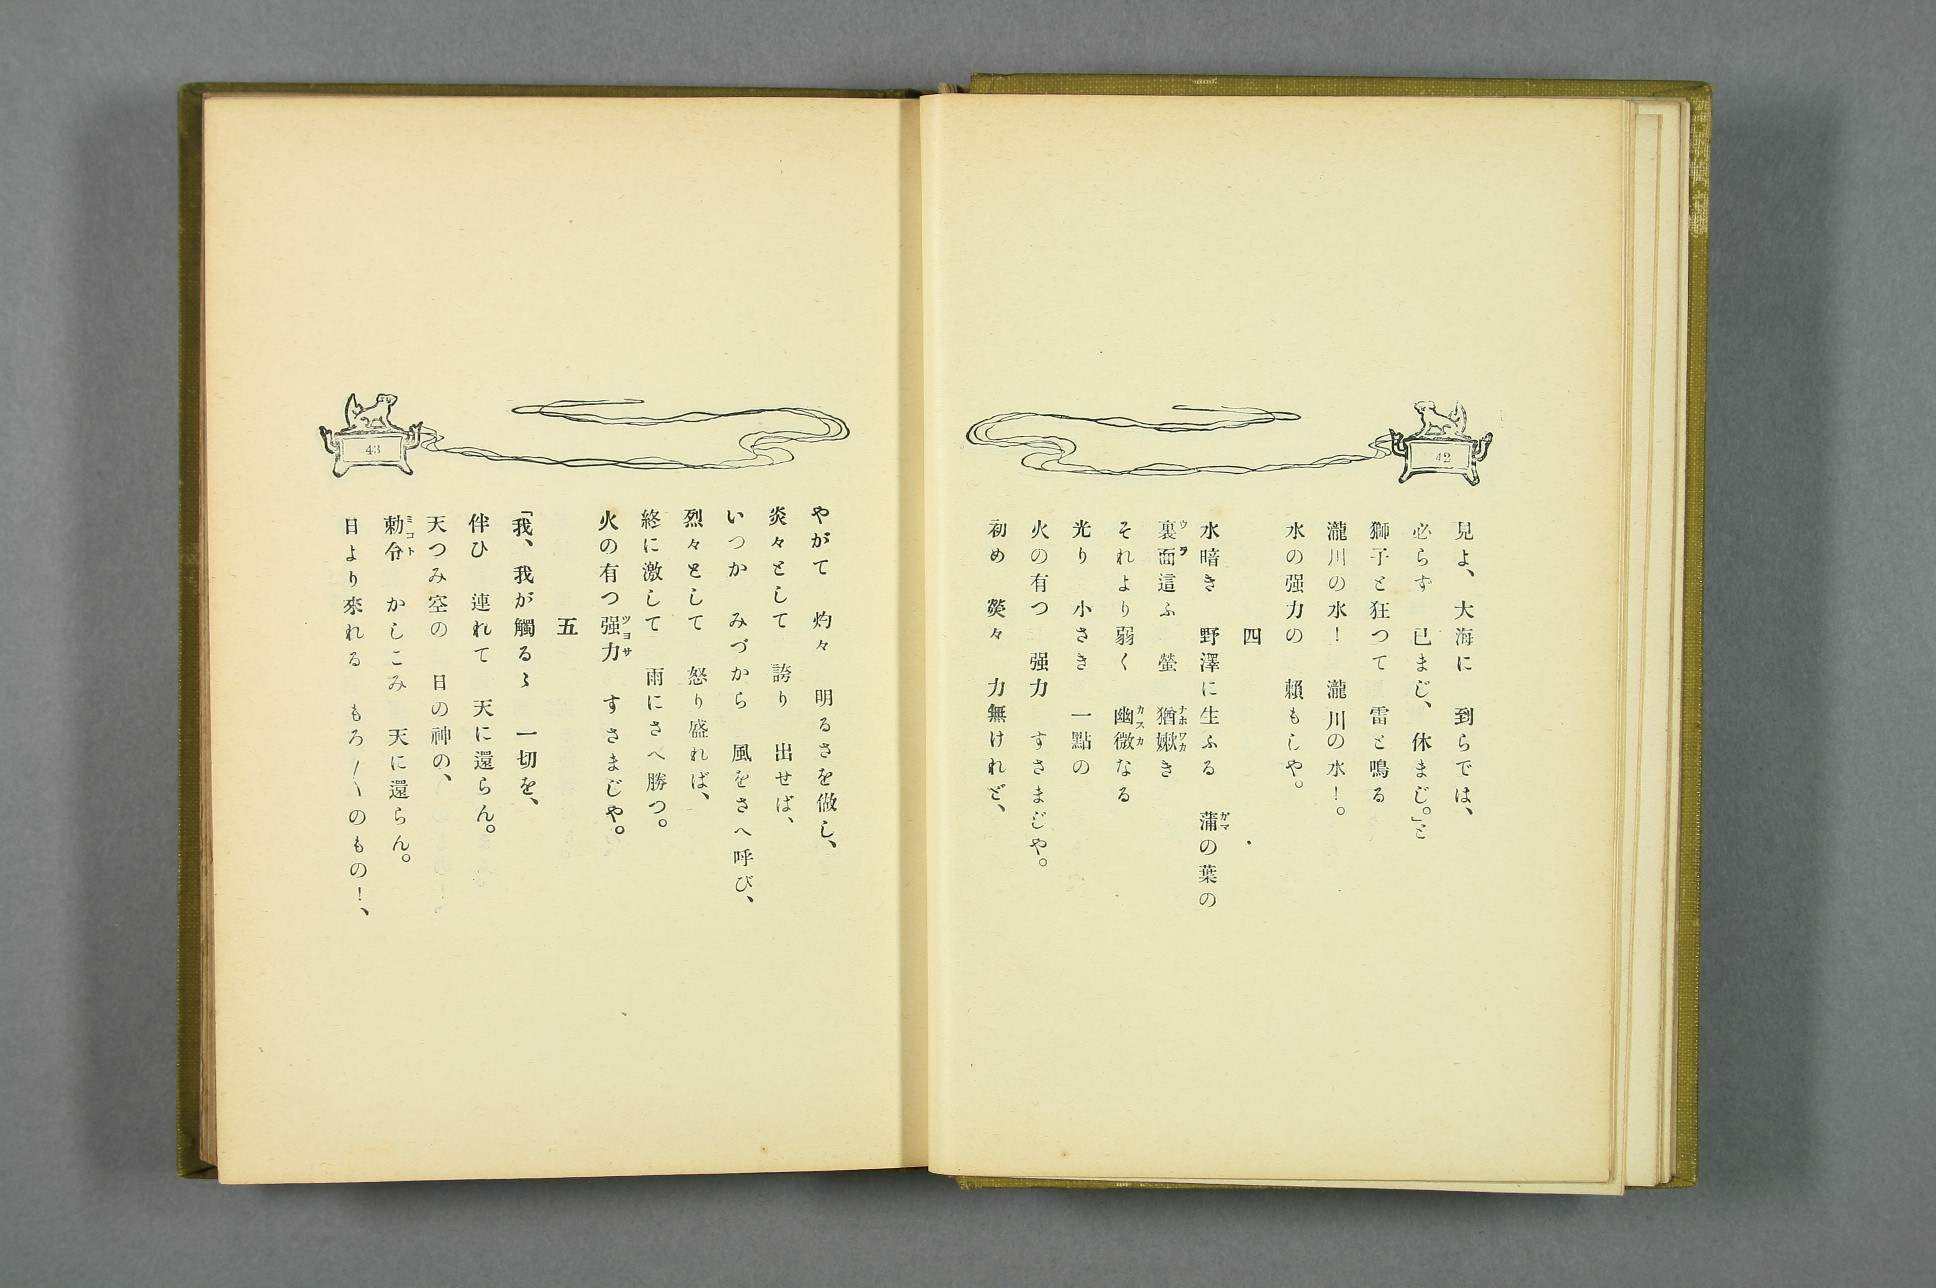 42
見よ、大海に　到らでは、
必らず　已まじ、休まじ。」と
獅子と狂つて　雷と鳴る
瀧川の水！　瀧川の水！。
水の强力の　賴もしや。
四
水暗き　野澤に生ふる　蒲の葉の
裏面這ふ　螢　猶嫩き
それより弱く　幽微なる
光り　小さき　一點の
火の有つ　强力　すさまじや。
初め　熒々　力無けれど、
43
やがて　灼々　明るさを做し、
炎々として　誇り　出せば、
いつか　みづから　風をさへ呼び、
烈々として　怒り盛れば、
終に激して　雨にさへ勝つ。
火の有つ强力　すさまじや。
五
「我、我が觸るゝ　一切を、
伴ひ　連れて　天に還らん。
天つみ空の　日の神の、
勅令　かしこみ　天に還らん。
日より來れる　もろ〳〵のもの！、